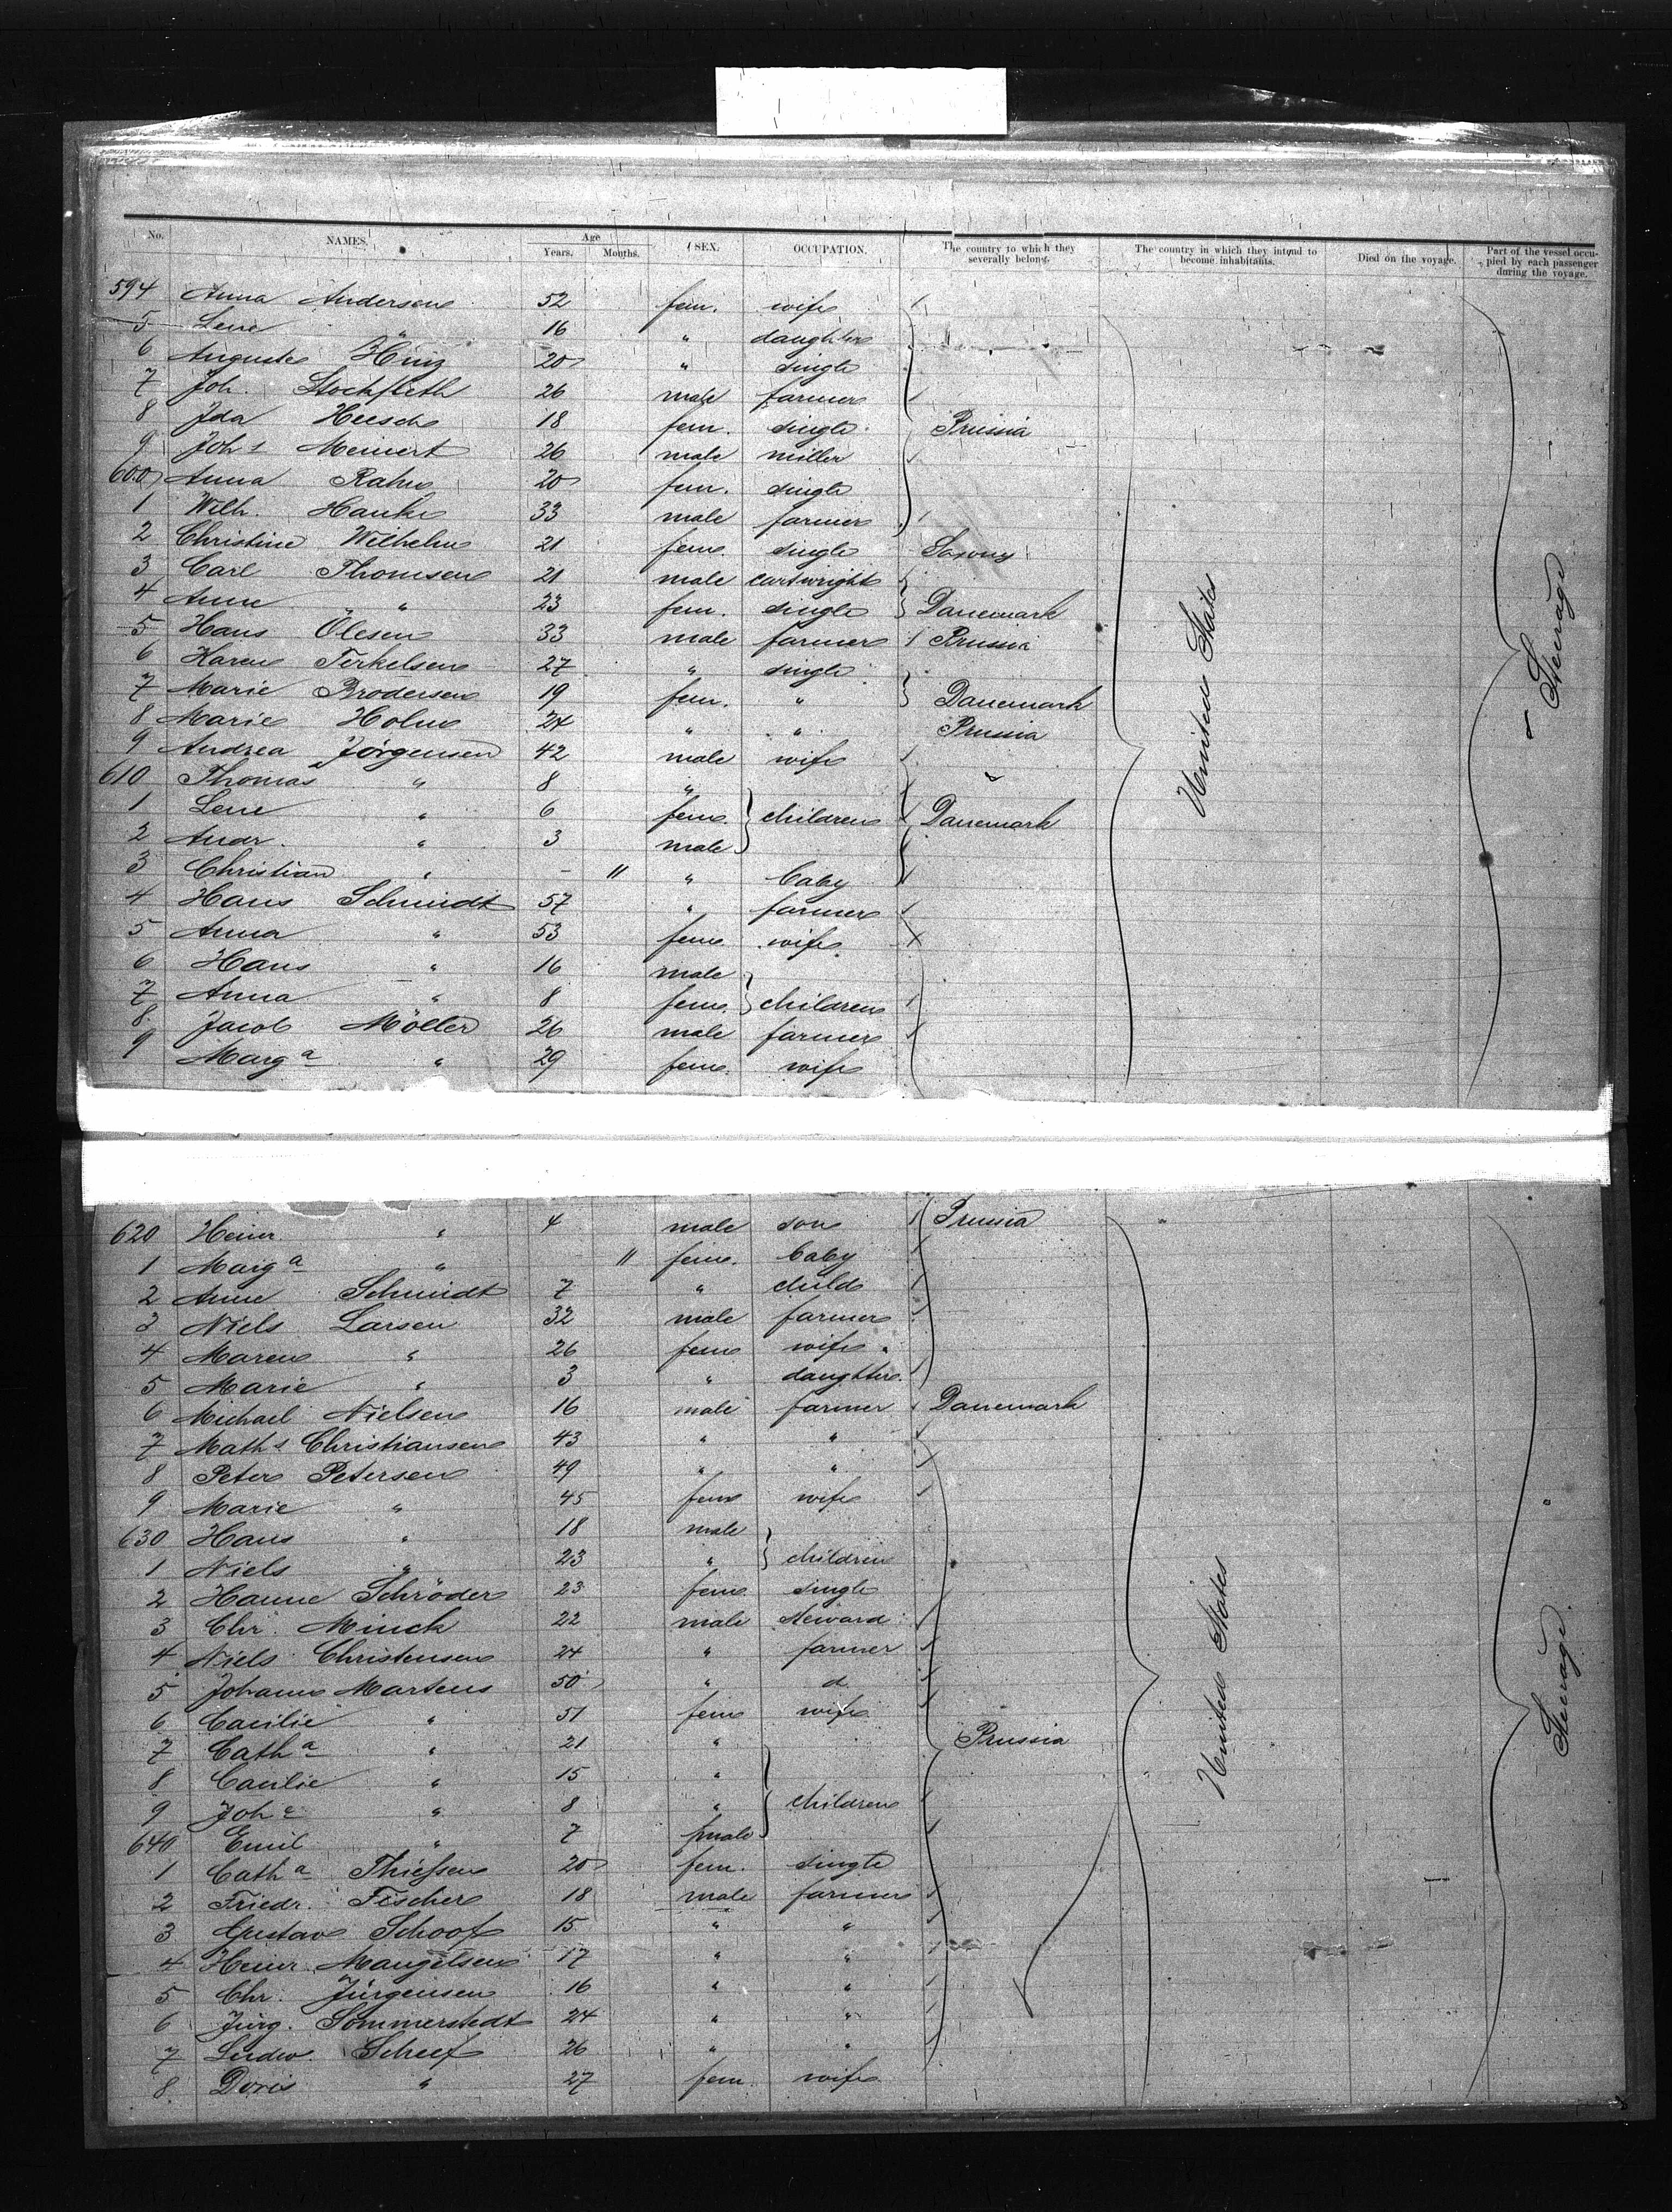 No. NAMES. Age Years. Months. SEX. OCCUPATION. The country to which they severally belong. The country in which they intend to become inhabitants. Died on the voyage. Part of the vessel occupied by each passenger during the voyage.
594 Anna Andersen 52 fem. wife
5 Lene " 16 " daughter
6 Auguste Hinz 20 " single
7 Joh. Stockfleth 26 male farmer
8 Ida Heesch 18 fem. single Prussia
9 Johs Meinert 26 male miller
600 Anna Rahn 20 fem. single
1 Wilh. Hanke 33 male farmer
2 Christine Wilhelm 21 fem single Saxony
3 Carl Thomsen 21 male cartwright
4 Anne " 23 fem. single Danemark
5 Hans Olesen 33 male farmer Prussia
6 Karen Terkelsen 27 " single
7 Marie Brodersen 19 fem. " Danemark
8 Marie Holm 24 " " Prussia
9 Andrea Jörgensen 42 male wife
610 Thomas " 8 "
1 Lene " 6 fem. children Danemark
2 Andr. " 3 male
3 Christian " - 11 " baby
4 Hans Schmidt 57 " farmer
5 Anna " 53 fem wife
6 Hans " 16 male
7 Anna " 8 fem. children
8 Jacob Möller 26 male farmer
9 Marga " 29 fem. wife
United States
Steerage
620 Heinr. " 4 male son Prussia
1 Marga " 11 fem. baby
2 Anne Schmidt 7 " child
3 Niels Larsen 32 male farmer
4 Maren " 26 fem wife
5 Marie " 3 " daughter.
6 Michael Nielsen 16 male farmer Danemark
7 Maths Christiansen 43 " "
8 Peter Petersen 49 " "
9 Marie " 45 fem wife
630 Hans " 18 male
1 Niels " 23 " children
2 Hanne Schröder 23 fem single
3 Chr. Minck 22 male steward
4 Niels Christensen 24 " farmer
5 Johann Martens 50 " d.
6 Cacilie " 51 fem wife
7 Catha " 21 " Prussia
8 Cacilie " 15 "
9 Johe " 8 " children
640 Emil " 7 male
1 Catha Thießen 20 fem. single
2 Friedr. Fischer 18 male farmer
3 Gustav Schoof 15 " "
4 Heinr. Mangelsen 17 " "
5 Chr. Jürgensen 16 " "
6 Jürg. Sommerstedt 24 " "
7 Ludw. Scheef 26 " "
8. Doris " 27 fem wife
United States
Steerage